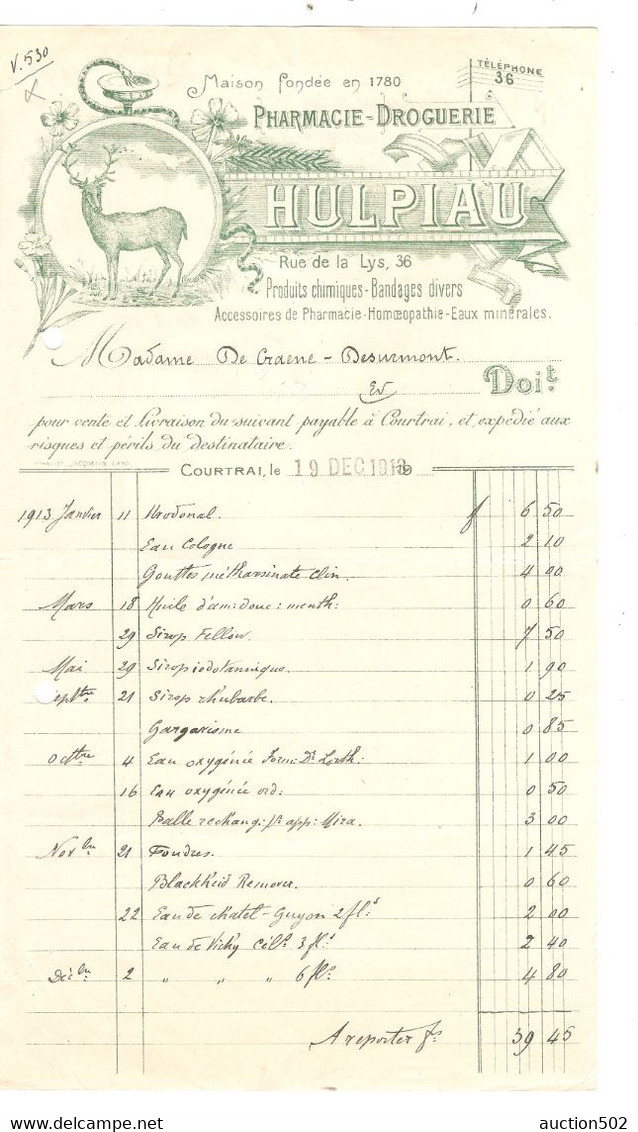 V. 530
Maison fondée en 1780
TÉLÉPHONE
36
PHARMACIE-DROGUERIE
HULPIAU
Rue de la Lys, 36
Produits chimiques-Bandages divers
Accessoires de Pharmacie-Homœopathie-Eaux minérales.
Madame De Craene - Desurmont.
Ev. Doit
pour vente et livraison du suivant payable à Courtrai, et expédié aux
risques et périls du destinataire.
COURTRAI, le 19 DEC 1913 19
1913 Janvier 11 Urodonal. f 6 50
Eau Cologne 2 10
Gouttes métharsinate Clin. 4 00
Mars 18 Huile d'am: douc: menth: 0 60
29 Sirop Fellow. 7 50
Mai 29 Sirop iodotannique. 1 90
septbre 21 Sirop rhubarbe. 0 25
Gargarisme 0 85
Octbre 4 Eau oxygénée Form: Dr 1 00
16 Eau oxygénée ord: 0 50
Balle rechang: pr app: Mira. 3 00
Novbre 21 Poudres. 1 45
Blackheid Remover. 0 60
22 Eau de Chatel-Guyon 2 fls 2 00
Eau de Vichy Céls 3 fls 2 40
Décbre 2 " " " 6 fls 4 80
A reporter fs 39 45
auction502